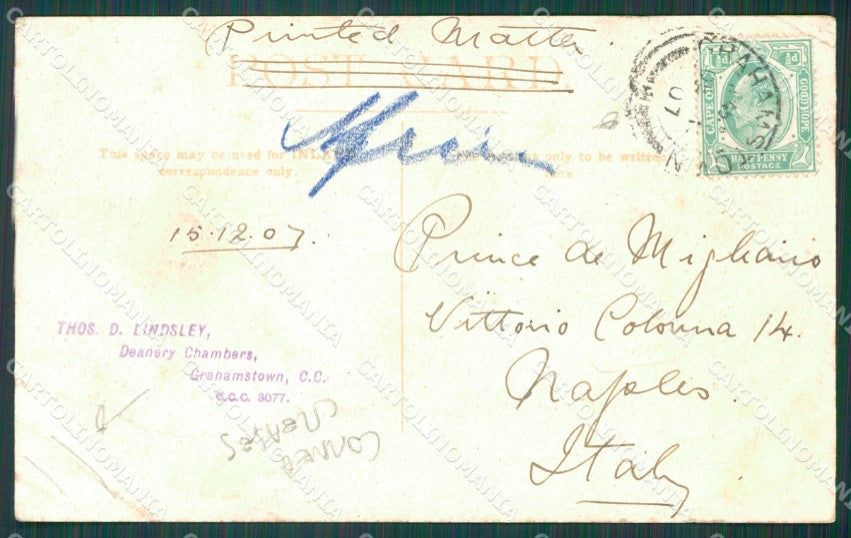 Printed Matter
POST CARD
This space may be used for INLAND
correspondence only.
only to be written
15.12.07.
Prince de Migliano
Vittorio Colonna 14.
Naples
Italy
THOS. D. LINDSLEY,
Deanery Chambers,
Grahamstown, C.C.
C.C.C. 3077.
CORNER
CREASES
CAPE OF GOOD HOPE
HALF PENNY
POSTAGE
½d
GRAHAMSTOWN
07
CARTOLINOMANIA